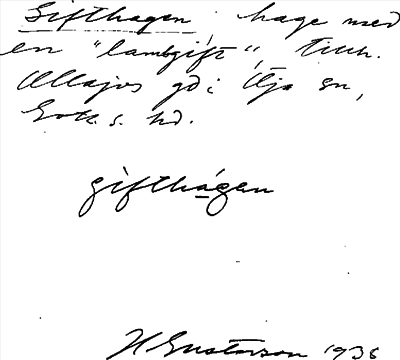 Gifthagen, hage med
en "lambgift", tillh.
Ollajvs gd i Öja sn,
Gotl. s. hd.
gifthágen
H Gustavson 1936